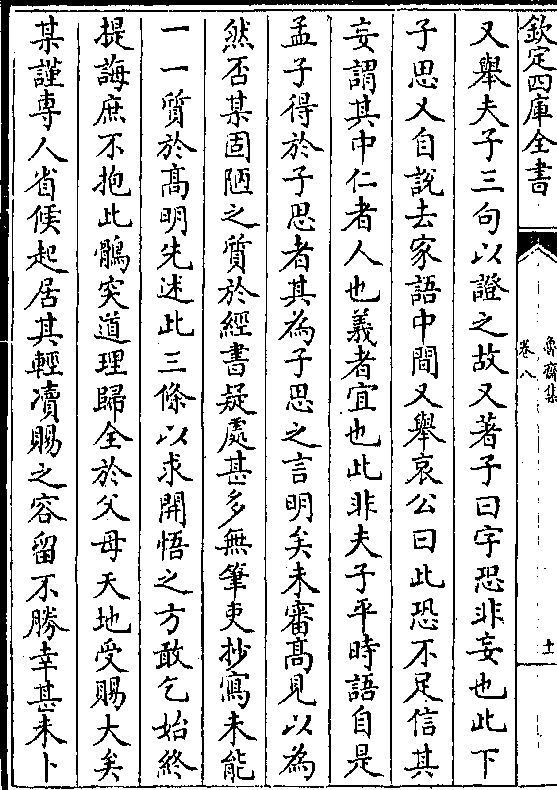 欽定四庫全書
魯齋集
卷八
十一
又舉夫子三句以證之故又著子曰字恐非妄也此下
子思又自說去家語中間又舉哀公曰此恐不足信其
妄謂其中仁者人也義者宜也此非夫子平時語自是
孟子得於子思者其為子思之言明矣未審髙見以為
然否某固陋之質於經書疑處甚多無筆吏抄寫未能
一一質於髙明先述此三條以求開悟之方敢乞始終
提誨庶不抱此鶻突道理歸全於父母天地受賜大矣
某謹専人省候起居其輕凟賜之容留不勝幸甚未卜